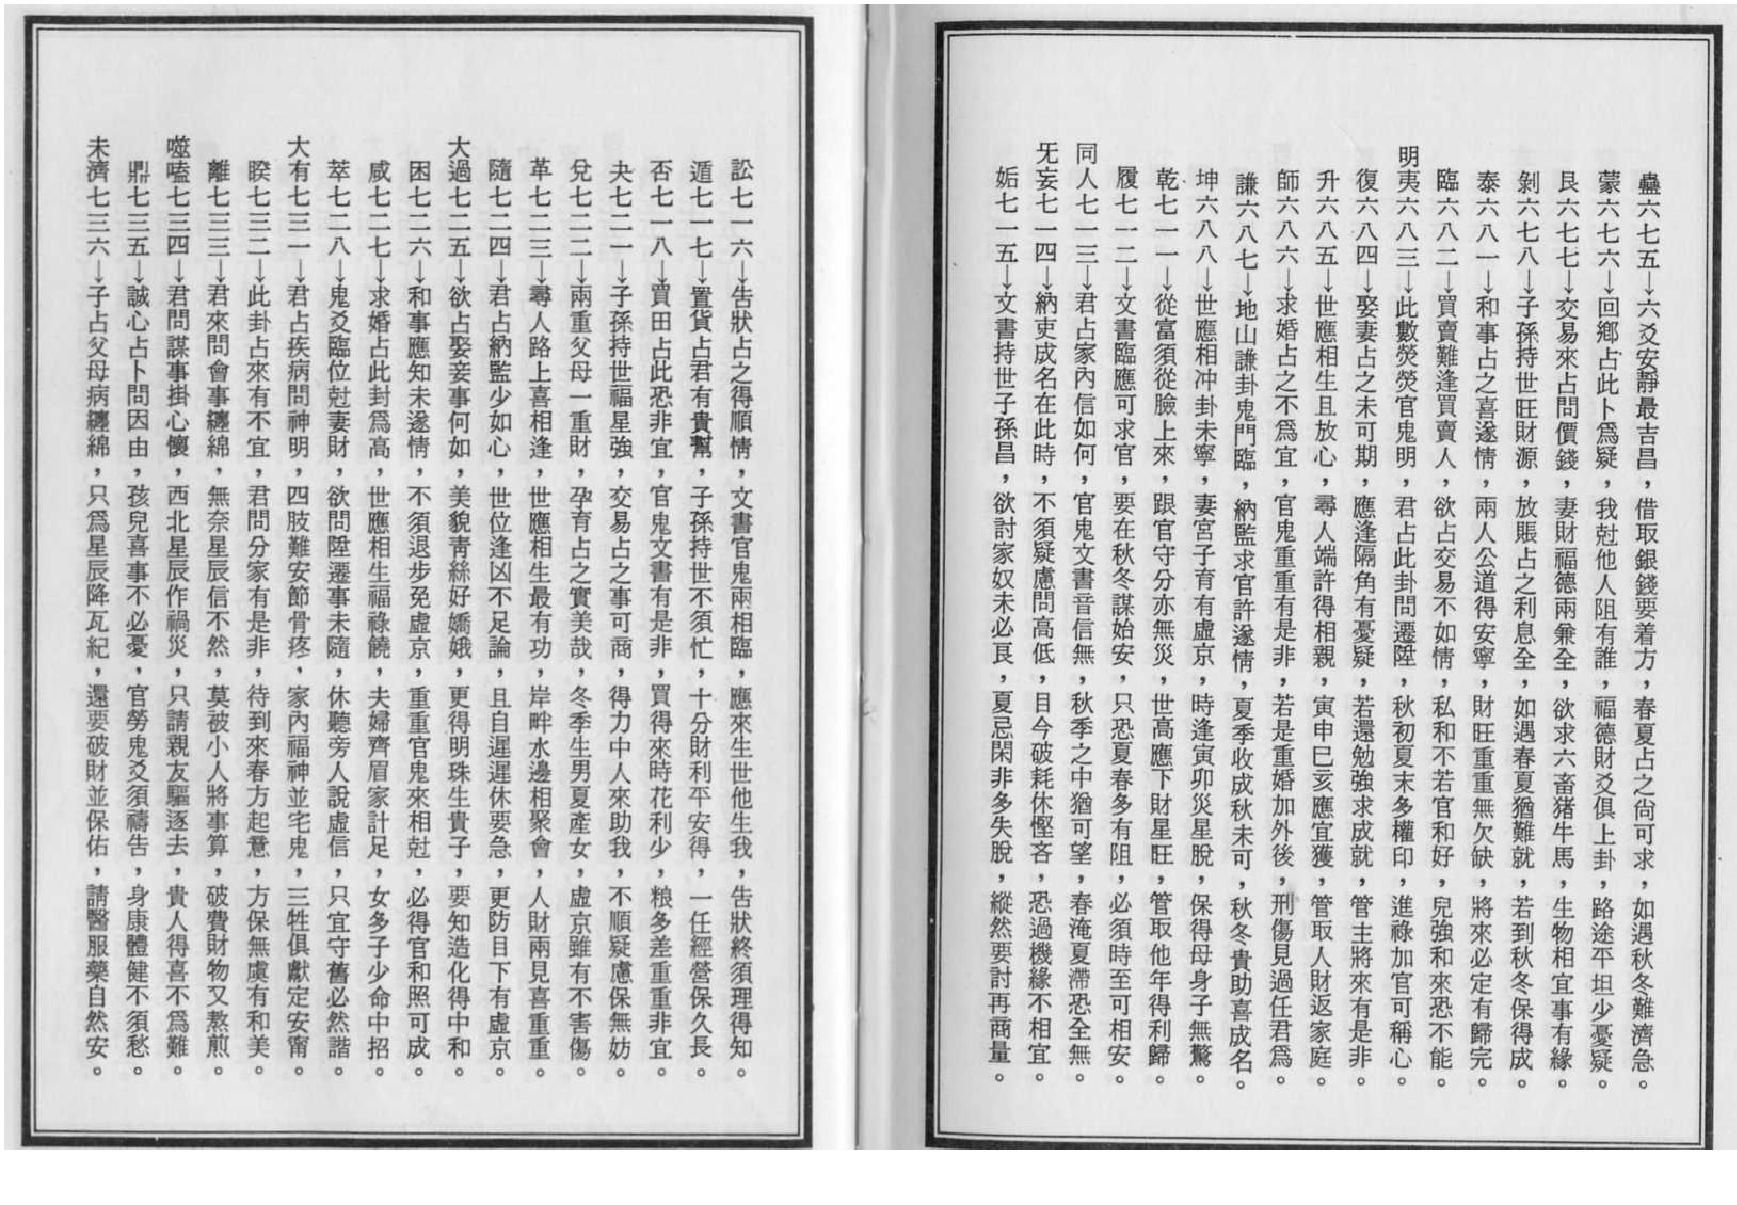 蠱六七五→六爻安靜最吉昌，借取銀錢要着方，春夏占之尙可求，如遇秋冬難濟急。
蒙六七六→回鄕占此卜爲疑，我尅他人阻有誰，福德財爻俱上卦，路途平坦少憂疑。
艮六七七→交易來占問價錢，妻財福德兩兼全，欲求六畜猪牛馬，生物相宜事有緣。
剝六七八→子孫持世旺財源，放賬占之利息全，如遇春夏猶難就，若到秋冬保得成。
泰六八一→和事占之喜遂情，兩人公道得安寧，財旺重重無欠缺，將來必定有歸完。
臨六八二→買賣難逢買賣人，欲占交易不如情，私和不若官和好，兒強和來恐不能。
明夷六八三→此數熒熒官鬼明，君占此卦問遷陞，秋初夏末多權印，進祿加官可稱心。
復六八四→娶妻占之未可期，應逢隔角有憂疑，若還勉強求成就，管主將來有是非。
升六八五→世應相生且放心，尋人端許得相親，寅申巳亥應宜獲，管取人財返家庭。
師六八六→求婚占之不爲宜，官鬼重重有是非，若是重婚加外後，刑傷見過任君爲。
謙六八七→地山謙卦鬼門臨，納監求官許遂情，夏季收成秋未可，秋冬貴助喜成名。
坤六八八→世應相冲卦未寧，妻宮子育有虛京，時逢寅卯災星脫，保得母身子無驚。
乾七一一→從富須從臉上來，跟官守分亦無災，世高應下財星旺，管取他年得利歸。
履七一二→文書臨應可求官，要在秋冬謀始安，只恐夏春多有阻，必須時至可相安。
同人七一三→君占家內信如何，官鬼文書音信無，秋季之中猶可望，春淹夏滯恐全無。
旡妄七一四→納吏成名在此時，不須疑慮問高低，目今破耗休慳吝，恐過機緣不相宜。
姤七一五→文書持世子孫昌，欲討家奴未必良，夏忌閑非多失脫，縱然要討再商量。
訟七一六→告狀占之得順情，文書官鬼兩相臨，應來生世他生我，告狀終須理得知。
遁七一七→置貨占君有貴幫，子孫持世不須忙，十分財利平安得，一任經營保久長。
否七一八→買田占此恐非宜，官鬼文書有是非，買得來時花利少，粮多差重重非宜。
夬七二一→子孫持世福星強，交易占之事可商，得力中人來助我，不順疑慮保無妨。
兌七二二→兩重父母一重財，孕育占之實美哉，冬季生男夏產女，虛京雖有不害傷。
革七二三→尋人路上喜相逢，世應相生最有功，岸畔水邊相聚會，人財兩見喜重重。
隨七二四→君占納監少如心，世位逢凶不足論，且自遲遲休要急，更防目下有虛京。
大過七二五→欲占娶妾事何如，美貌靑絲好嬌娥，更得明珠生貴子，要知造化得中和。
困七二六→和事應知未遂情，不須退步免虛京，重重官鬼來相尅，必得官和照可成。
咸七二七→求婚占此封爲高，世應相生福祿饒，夫婦齊眉家計足，女多子少命中招。
萃七二八→鬼爻臨位尅妻財，欲問陞遷事未隨，休聽旁人說虛信，只宜守舊必然諧。
大有七三一→君占疾病問神明，四肢難安節骨疼，家內福神並宅鬼，三牲俱獻定安甯。
睽七三二→此卦占來有不宜，君問分家有是非，待到來春方起意，方保無虞有和美。
離七三三→君來問會事纏綿，無奈星辰信不然，莫被小人將事算，破費財物又熬煎。
噬嗑七三四→君問謀事掛心懷，西北星辰作禍災，只請親友驅逐去，貴人得喜不爲難。
鼎七三五→誠心占卜問因由，孩兒喜事不必憂，官勞鬼爻須禱告，身康體健不須愁。
未濟七三六→子占父母病纏綿，只爲星辰降瓦紀，還要破財並保佑，請醫服藥自然安。